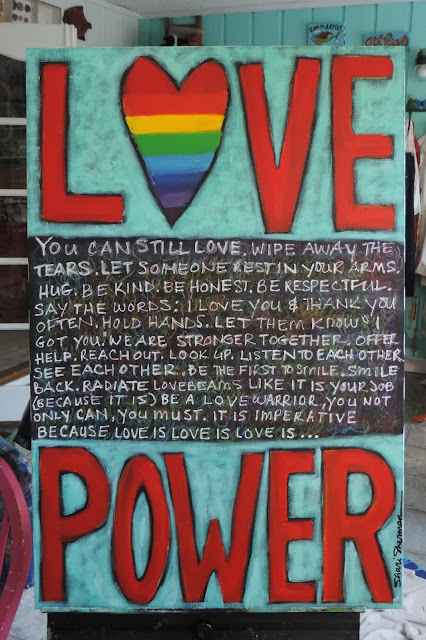 LOVE
YOU CAN STILL LOVE. WIPE AWAY THE
TEARS. LET SOMEONE REST IN YOUR ARMS.
HUG. BE KIND. BE HONEST. BE RESPECTFUL.
SAY THE WORDS: I LOVE YOU & THANK YOU
OFTEN. HOLD HANDS. LET THEM KNOW "I
GOT YOU. WE ARE STRONGER TOGETHER. OFFER
HELP. REACH OUT. LOOK UP. LISTEN TO EACH OTHER
SEE EACH OTHER. BE THE FIRST TO SMILE. SMILE
BACK. RADIATE LOVEBEAMS LIKE IT IS YOUR JOB
(BECAUSE IT IS) BE A LOVE WARRIOR. YOU NOT
ONLY CAN, YOU MUST. IT IS IMPERATIVE
BECAUSE LOVE IS LOVE IS LOVE IS ...
POWER
Saari Sherman